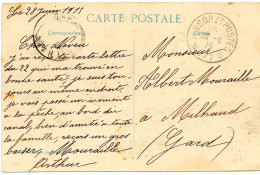 Le 28 Juin 1918
CARTE POSTALE
Correspondance
Cher Neveu
J'ai reçu ta carte lettre du
22 qui m'a trouvé en
bonne santé, je suis tou
jours au même endroit.
je vais passé un moment
à la pêche au bord du
canal, bien d'amitié à toute
la famille, reçois un gros
baiser,
Arthur
Monsieur
Albert Mouraille
à
Milhaud
(Gard)